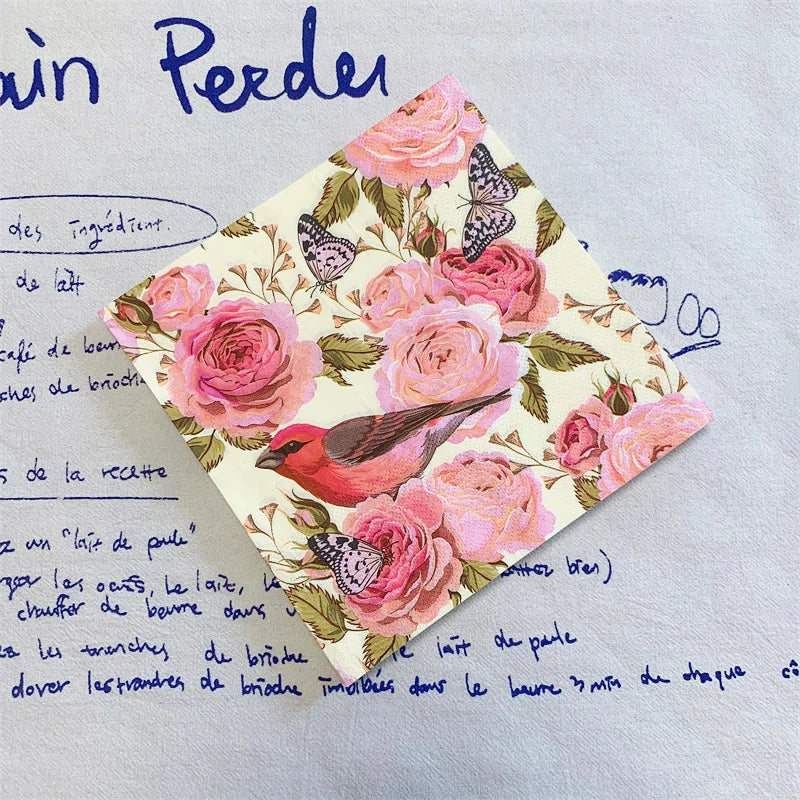 ain Perdu
des ingrédient.
de lait
café de beur
ches de brioche
s de la recette
ez un "lait de poule"
les oeufs, le lait, bien)
chauffer de beurre dans
ez les tranches de brioche le lait de poule
dorer les trandres de brioche imbibées dans le beurre 3 min de chaque cô